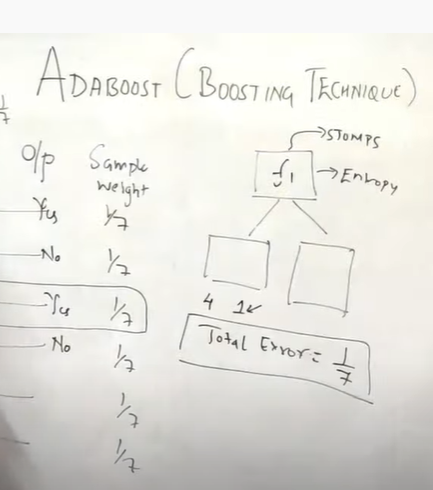 ADABOOST (BOOSTING TECHNIQUE)
1/7
O/p Sample weight
Yes 1/7
No 1/7
Yes 1/7
No 1/7
1/7
1/7
STOMPS
f1
Entropy
4 1
Total Error = 1/7